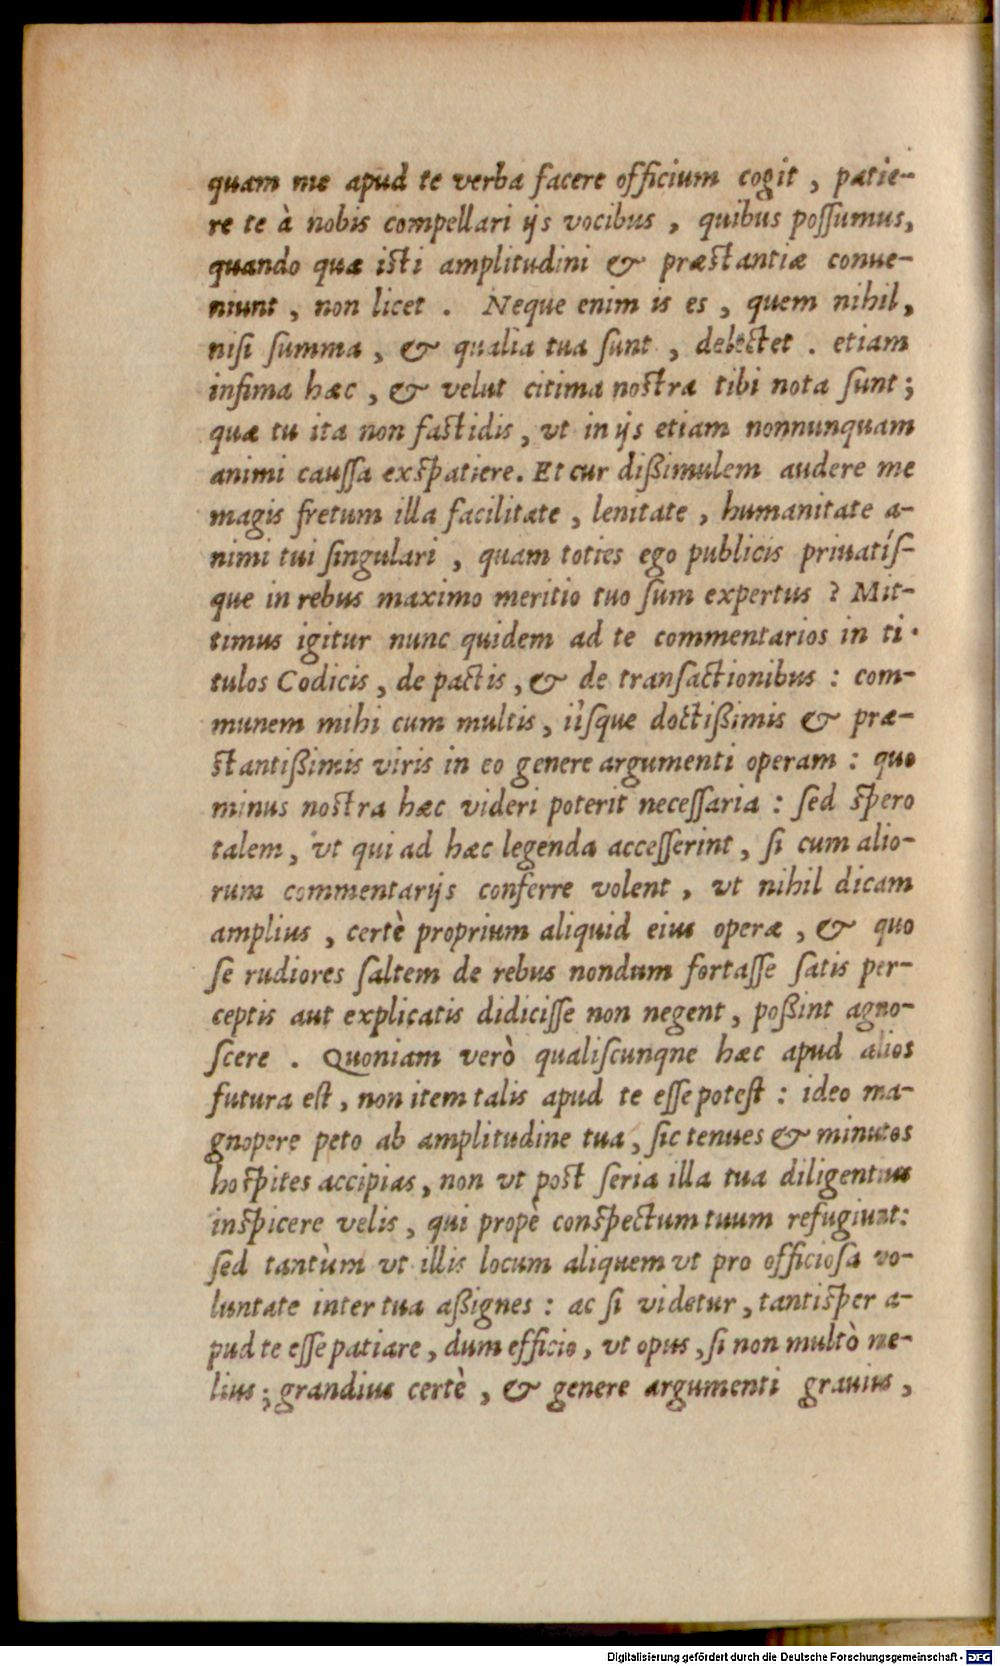 quam me apud te verba facere officium cogit , patie-
re te à nobis compellari ijs vocibus , quibus poſſumus,
quando quæ iſti amplitudini & præſtantiæ conue-
niunt , non licet . Neque enim is es , quem nihil,
niſi ſumma , & qualia tua ſunt , delectet . etiam
infima hæc , & velut citima noſtra tibi nota ſunt ;
quæ tu ita non faſtidis , vt in ijs etiam nonnunquam
animi cauſſa exſpatiere. Et cur dißimulem audere me
magis fretum illa facilitate , lenitate , humanitate a-
nimi tui ſingulari , quam toties ego publicis priuatíſ-
que in rebus maximo meritio tuo ſum expertus ? Mit-
timus igitur nunc quidem ad te commentarios in ti-
tulos Codicis , de pactis , & de tranſactionibus : com-
munem mihi cum multis , iíſque doctißimis & præ-
ſtantißimis viris in eo genere argumenti operam : quo
minus noſtra hæc videri poterit neceſſaria : ſed ſpero
talem , vt qui ad hæc legenda acceſſerint , ſi cum alio-
rum commentarijs conferre volent , vt nihil dicam
amplius , certè proprium aliquid eius operæ , & quo
ſe rudiores ſaltem de rebus nondum fortaſſe ſatis per-
ceptis aut explicatis didiciſſe non negent , poßint agno-
ſcere . Quoniam verò qualiſcunqne hæc apud alios
futura eſt , non item talis apud te eſſe poteſt : ideo ma-
gnopere peto ab amplitudine tua , ſic tenues & minutos
hoſpites accipias , non vt poſt ſeria illa tua diligentius
inſpicere velis , qui propè conſpectum tuum refugiunt:
ſed tantùm vt illis locum aliquem vt pro officioſa vo-
luntate inter tua aßignes : ac ſi videtur , tantiſper a-
pud te eſſe patiare , dum efficio , vt opus , ſi non multò me-
lius ; grandius certè , & genere argumenti grauius ,
Digitalisierung gefördert durch die Deutsche Forschungsgemeinschaft - DFG